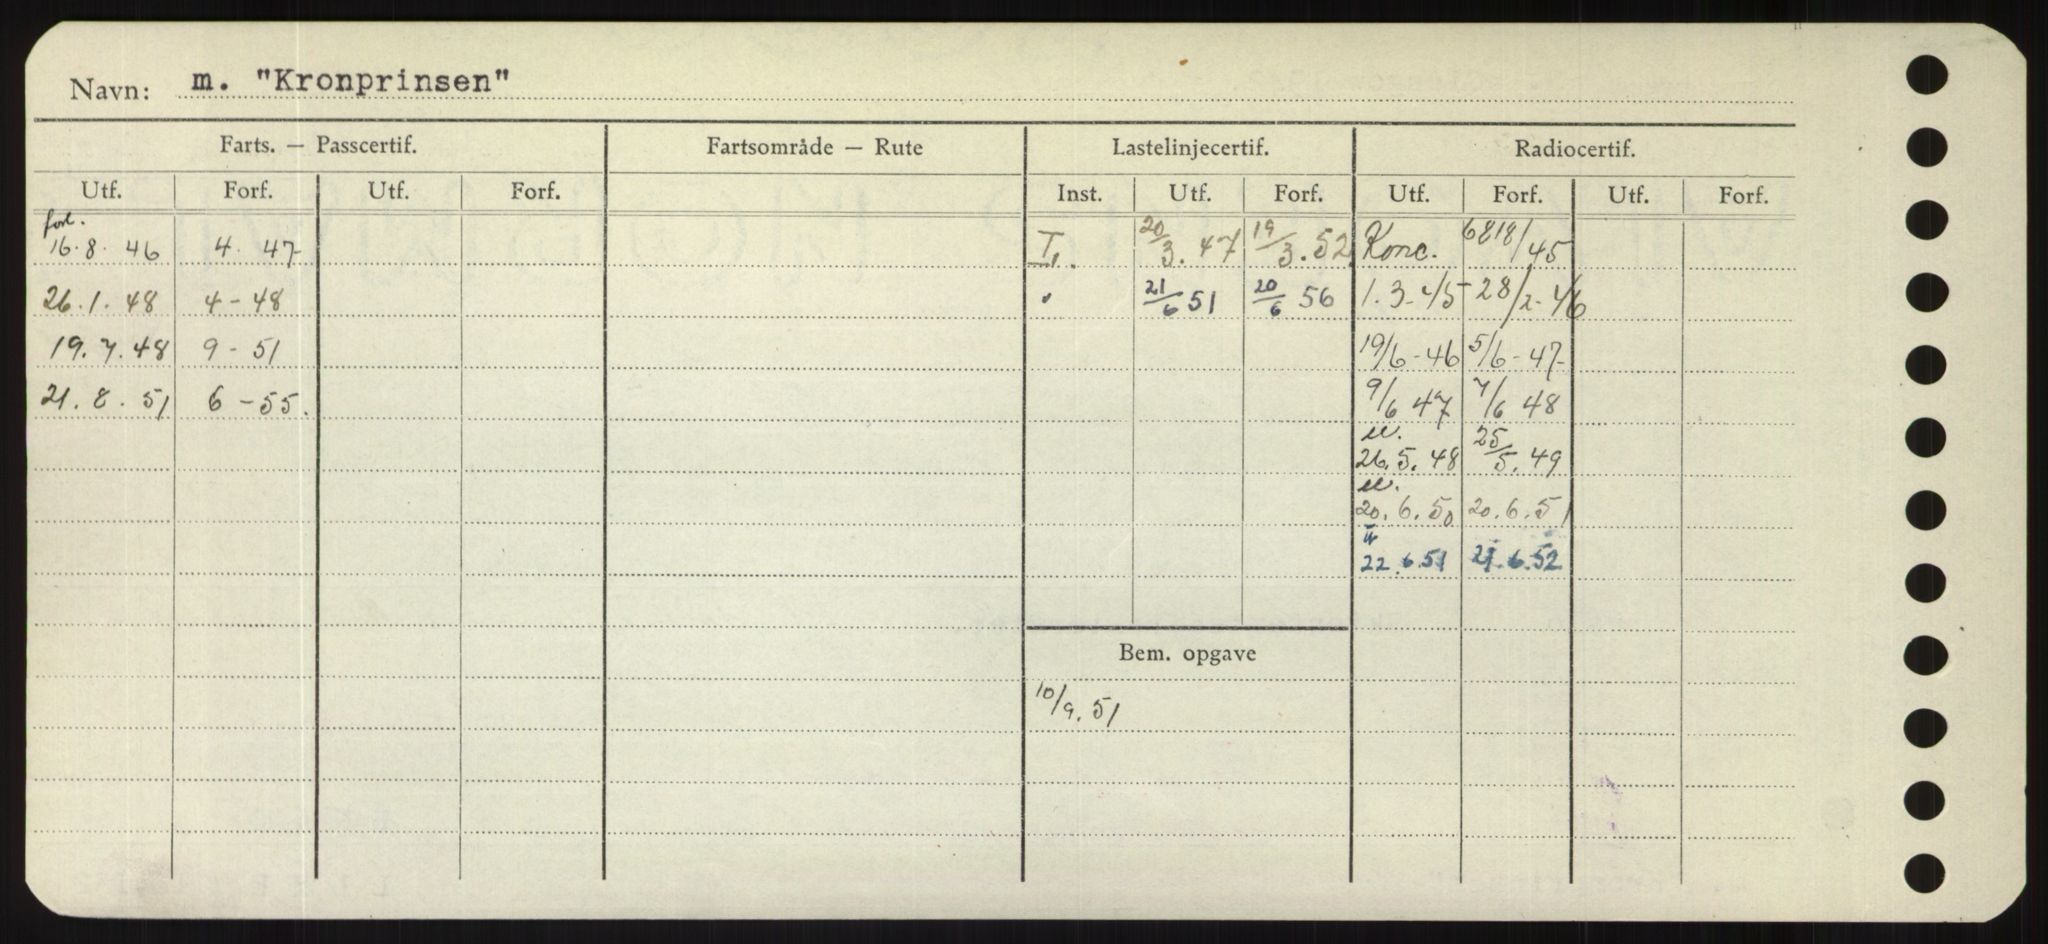 Navn: m. "Kronprinsen"
Farts. — Passcertif. Fartsområde — Rute Lastelinjecertif. Radiocertif.
Utf. Forf. Utf. Forf. Inst. Utf. Forf. Utf. Forf. Utf. Forf.
forl.
16.8.46 4.47 I. 20/3.47 19/3.52 Konc. 6818/45
26.1.48 4-48 " 21/6 51 20/6 56 1.3-45 28/2-46
19.7.48 9-51 19/6-46 5/6-47
21.8.51 6-55. 9/6 47 7/6 48
26.5.48 25/5.49
20.6.50 20.6.51
22.6.51 21.6.52
Bem. opgave
10/9.51